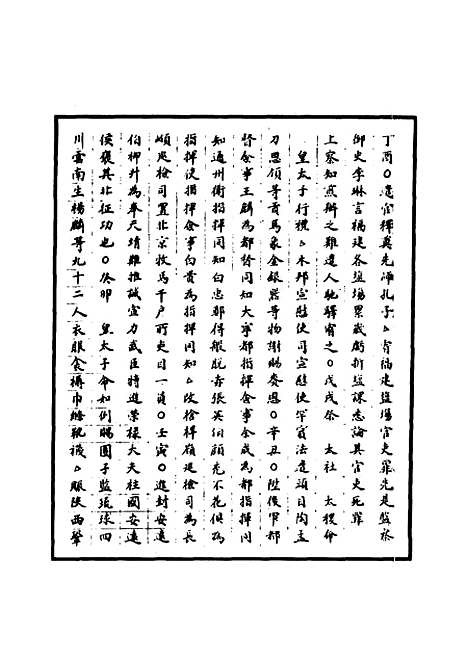 丁酉○遣官釋奠先師孔子△宥福建鹽場官吏罪先是監察
御史李琳言福建各鹽場累歲虧折鹽課悉論其官吏死罪
上察知煎辦之難遣人馳驛宥之○戊戌祭　太社　太稷命
皇太子行禮△木邦宣慰使司宣慰使罕賓法遣頭目陶孟
刀思領等貢馬象金銀器等物謝賜賚恩○辛丑○陞後軍都
督僉事王麟為都督同知大寧都指揮僉事全成為都指揮同
知通州衛指揮同知白忠都得脫赤張英相顏禿不花俱為
指揮使指揮僉事白貴為指揮同知△改檢桿嶺巡檢司為長
峪巡檢司置北京牧馬千戶所吏目一員○壬寅○進封安遠
伯柳升為奉天靖難推誠宣力武臣特進榮祿大夫柱國安遠
侯褒其北征功也○癸卯　皇太子命如例賜國子監琉球四
川雲南生楊麟等九十三人衣服食褥巾絛靴襪△賑陝西鞏